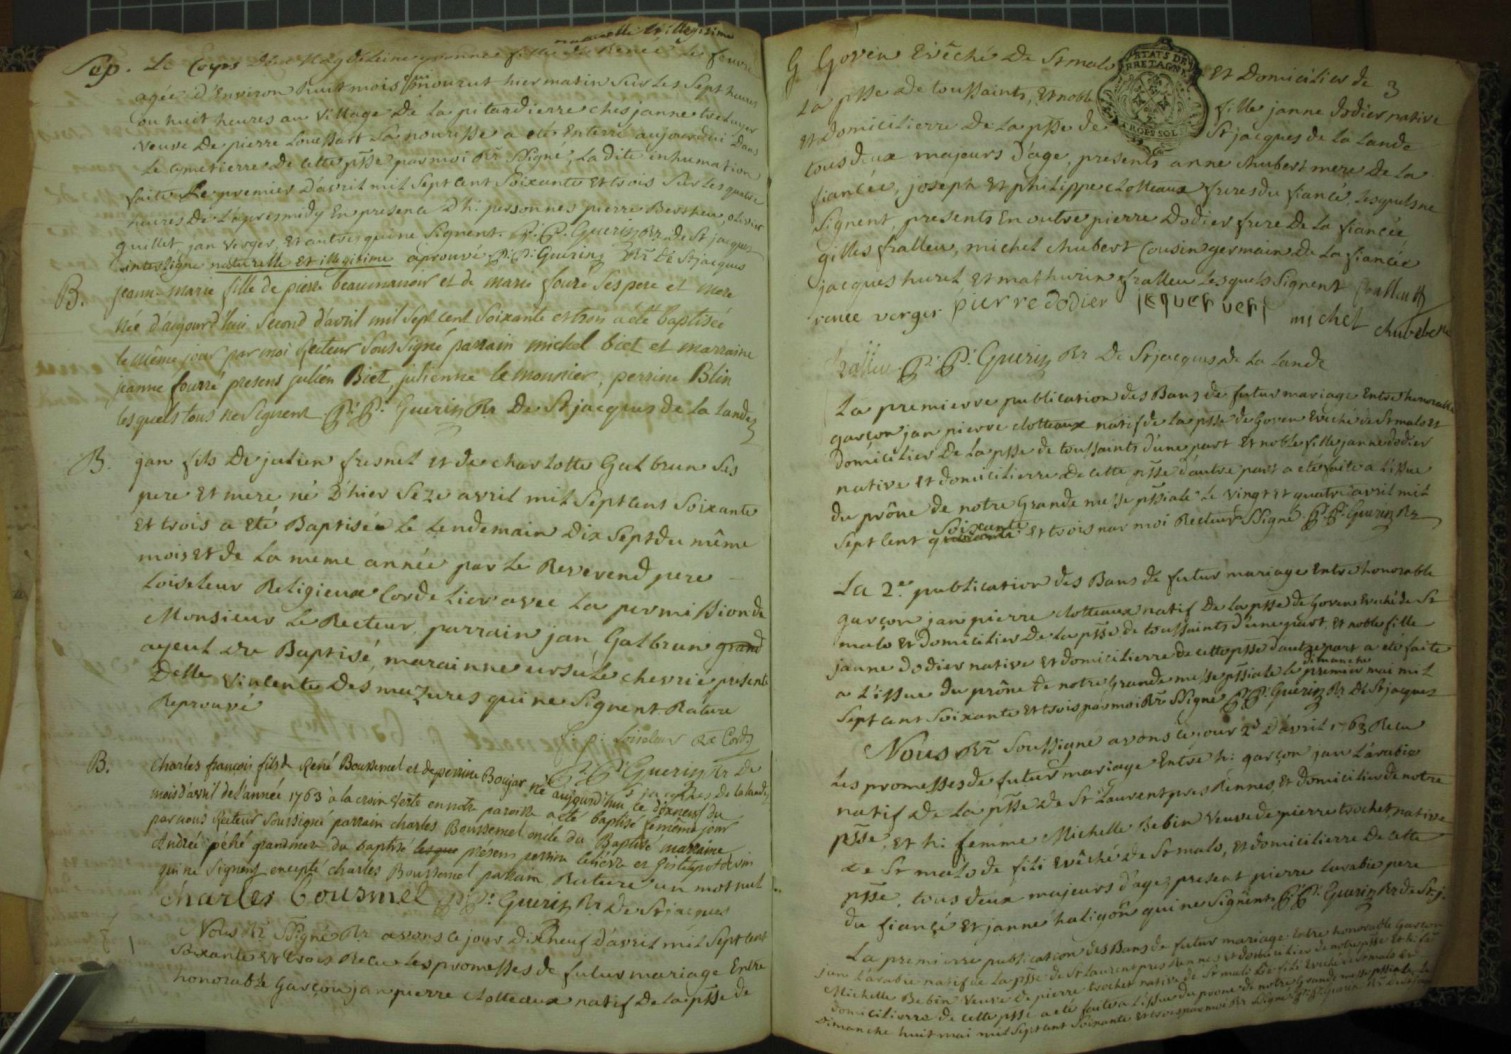 naturelle et illegitime
Sep. Le Corps de Magdelaine fille de Renée Le feuvre
agée d'Environ huit mois mourut hier matin sur les Sept heures
ou huit heures au village De La pitardierre ches janne
veuve De pierre Louessart Sa nourisse a eté Enterré aujourdhui dans
Le cimetierre De Cette psse par moi Rr Ssigné, La dite inhumation
faite Le premier d'avril mil Sept cent Soixante Et trois Sur les quatre
heures De L'apresmidy En presence D'h: personnes pierre Berthew olivier
quillet, jan verger, Et autres qui ne Signent. P: P: Guerin Rr de St jacques
interligne naturelle Et illegitime aprouvé P: P: Guerin Rr De St jacques
B. jeanne marie fille de pierre beaumanoir et de marie fouré Ses pere et mere
née d'aujourd'hui Second d'avril mil Sept cent Soixante et trois a eté baptisée
le même jour par moi Recteur Soussigné parrain michel biet et marraine
jeanne fourré presens julien Biet, julienne le monnier, perrine Blin
lesquels tous ne Signent P: P: Guerin Rr De St jacques de La Lande
B. jan fils De julien fresnel Et de charlotte Galbrun Ses
pere Et mere né D'hier Seze avril mil Sept cent Soixante
Et trois a eté Baptisée Le Lendemain Dix Sept du même
mois Et de La meme année par Le Reverend pere
Loiseleur Religieux Cordelier avec La permission de
Monsieur Le Recteur, parrain jan Galbrun grand
ayeul du Baptisé, marainne ursule chevrié presente
Delle vialente Des mazures qui ne Signent Rature
Reprouvé
Loiseleur Rx Cordr
P: P: Guerin Rr De
St jacques de la lande
B. Charles francois fils de René Boussemel et de perrine Boujar né aujourd'hui ce dixneuf du
mois d'avril de l'année 1763 a la croix verte en notre paroisse a eté baptisé le meme jour
par nous Recteur Soussigné parrain charles Boussemel oncle du Baptisé marraine
Andrée péhé grandmere du baptisé presens perrine
qui ne Signent excepté charles Boussemel parrain Rature un mot nul
charles Cousmel P: P: Guerin Rr De St jacques
Nous Rr Ssigné avons ce jour Dixneuf d'avril mil Sept cent
Soixante et trois Recu Les promesses de futur mariage Entre
honorable Garçon jan pierre Clotteaux natif De La psse de
G Goven Evêché De St malo Et Domicilier de 3
La psse de toussaints, Et noble fille janne Dodier native
Et domicilierre De La psse de St jacques de La Lande
tous deux majeurs d'age, presents anne chubert mere De La
fiancée, joseph Et philippe Clotteaux freres du fiancé, Lesquels ne
Signent, presents En outre pierre Dodier frere De La fiancée
gilles fralleu, michel chubert Cousin germain De La fiancée
jacques hurel Et mathurin fralleu Lesquels Signent
renée verger pierre dodier michel chubert
P: P: Guerin Rr De St jacques de La Lande
La premierre publication des Bans de futur mariage Entre honorable
garçon jan pierre Clotteaux natif de La psse de Goven Evêché de St malo Et
domicilier De La psse de toussaints d'une part Et noble fille janne dodier
native Et domicilierre de cette psse d'autre part a eté faite a L'issue
du prône de notre Grande messe pssiale Le vingt Et quatre avril mil
Sept Cent Soixante Et trois par moi Recteur Ssigné P: P: Guerin Rr
La 2e publication des Bans de futur mariage Entre honorable
garçon jan pierre Clotteaux natif De La psse de Goven Evêché de St
malo Et domicilier De La psse de toussaints d'une part, Et noble fille
janne dodier native Et domicilierre de cette psse d'autre part a eté faite
a L'issue du prône de notre Grande messe pssiale Le dimanche premier mai mil
Sept cent Soixante Et trois par moi Rr Ssigné P: P: Guerin Rr De St jacques
Nous Rr Soussigné avons ce jour 2d D'avril 1763 Recu
Les promesses de futur mariage Entre h: garçon jan Larabie
natif de La psse de St Laurent pres Rennes, Et domicilier de notre
psse, Et h: femme Michelle Bebin veuve de pierre trochet native
de St malo de fili Evêché de St malo, Et domicilierre De cette
psse, tous deux majeurs d'age, present pierre Larabie pere
du fiancé Et janne haligon qui ne Signent P: P: Guerin Rr de St j.
La premierre publication des Bans de futur mariage Entre honorable Garçon
jan Larabie natif de la psse de St Laurent pres Rennes et domicilier de notre psse et h: fe
Michelle Bebin veuve De pierre trochet native de St malo De fili Evêché de St malo Et
domicilierre de cette psse a eté faite a L'issue du prone de notre Grande messe pssiale Le
Dimanche huit mai mil Sept cent Soixante Et trois par moi Rr Ssigné P: P: Guerin Rr